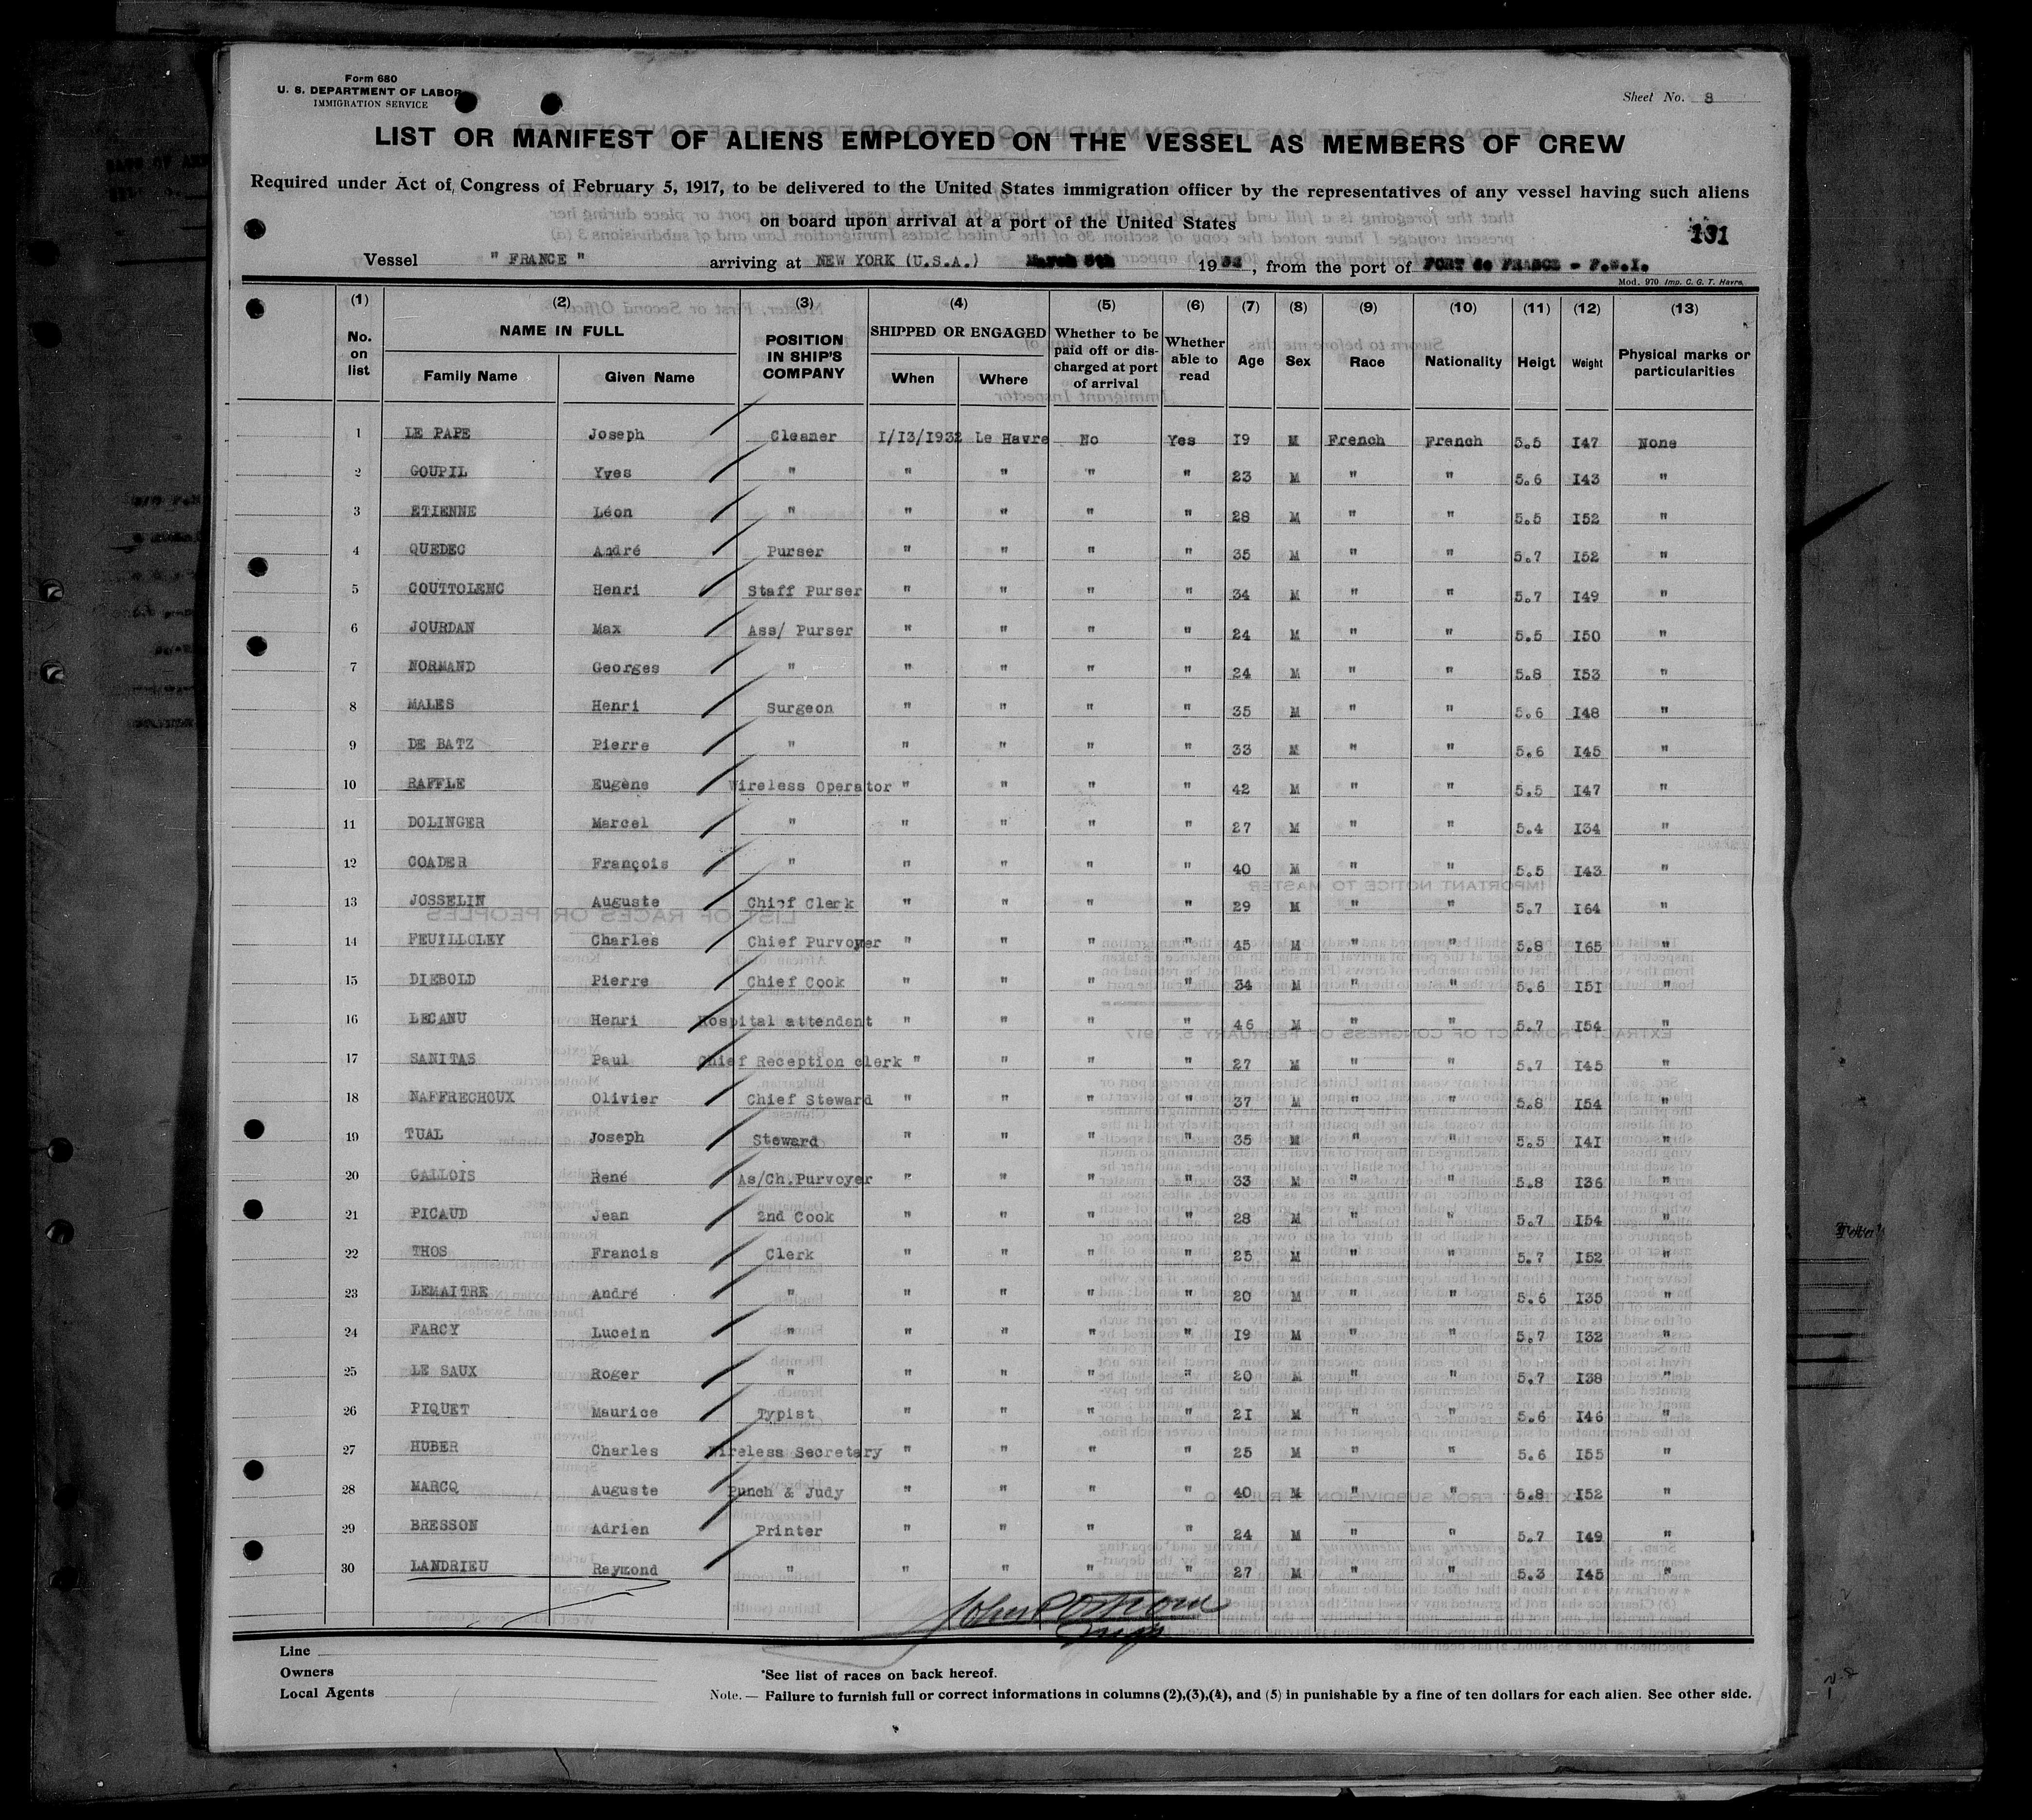 Form 680
U. S. DEPARTMENT OF LABOR
IMMIGRATION SERVICE
Sheet No. 8
LIST OR MANIFEST OF ALIENS EMPLOYED ON THE VESSEL AS MEMBERS OF CREW
Required under Act of Congress of February 5, 1917, to be delivered to the United States immigration officer by the representatives of any vessel having such aliens
on board upon arrival at a port of the United States
131
Vessel " FRANCE " arriving at NEW YORK (U.S.A.) March 5th 1932, from the port of FORT de FRANCE - F.W.I.
Mod. 970 Imp. C. G. T. Havre.
(1) (2) (3) (4) (5) (6) (7) (8) (9) (10) (11) (12) (13)
No. on list NAME IN FULL Family Name Given Name POSITION IN SHIP'S COMPANY SHIPPED OR ENGAGED When Where Whether to be paid off or discharged at port of arrival Whether able to read Age Sex Race Nationality Heigt Weight Physical marks or particularities
1 LE PAPE Joseph Cleaner I/I3/I932 Le Havre No Yes I9 M French French 5.5 I47 None
2 GOUPIL Yves " " " " " 23 M " " 5.6 I43 "
3 ETIENNE Léon " " " " " 28 M " " 5.5 I52 "
4 QUEDEC André Purser " " " " 35 M " " 5.7 I52 "
5 COUTTOLENC Henri Staff Purser " " " " 34 M " " 5.7 I49 "
6 JOURDAN Max Ass/ Purser " " " " 24 M " " 5.5 I50 "
7 NORMAND Georges " " " " " 24 M " " 5.8 I53 "
8 MALES Henri Surgeon " " " " 35 M " " 5.6 I48 "
9 DE BATZ Pierre " " " " " 33 M " " 5.6 I45 "
10 RAFFLE Eugène Wireless Operator " " " " 42 M " " 5.5 I47 "
11 DOLINGER Marcel " " " " " 27 M " " 5.4 I34 "
12 COADER François " " " " " 40 M " " 5.5 I43 "
13 JOSSELIN Auguste Chief Clerk " " " " 29 M " " 5.7 I64 "
14 FEUILLOLEY Charles Chief Purvoyer " " " " 45 M " " 5.8 I65 "
15 DIEBOLD Pierre Chief Cook " " " " 34 M " " 5.6 I5I "
16 LECANU Henri Hospital attendent " " " " 46 M " " 5.7 I54 "
17 SANITAS Paul Chief Reception clerk " " " " 27 M " " 5.7 I45 "
18 NAFFRECHOUX Olivier Chief Steward " " " " 37 M " " 5.8 I54 "
19 TUAL Joseph Steward " " " " 35 M " " 5.5 I4I "
20 GALLOIS René As/Ch.Purvoyer " " " " 33 M " " 5.8 I36 "
21 PICAUD Jean 2nd Cook " " " " 28 M " " 5.7 I54 "
22 THOS Francis Clerk " " " " 25 M " " 5.7 I52 "
23 LEMAITRE André " " " " " 20 M " " 5.6 I35 "
24 FARCY Lucein " " " " " I9 M " " 5.7 I32 "
25 LE SAUX Roger " " " " " 20 M " " 5.7 I38 "
26 PIQUET Maurice Typist " " " " 2I M " " 5.6 I46 "
27 HUBER Charles Wireless Secretary " " " " 25 M " " 5.6 I55 "
28 MARCQ Auguste Punch & Judy " " " " 40 M " " 5.8 I52 "
29 BRESSON Adrien Printer " " " " 24 M " " 5.7 I49 "
30 LANDRIEU Raymond " " " " " 27 M " " 5.3 I45 "
Line
Owners
Local Agents
*See list of races on back hereof.
Note. — Failure to furnish full or correct informations in columns (2),(3),(4), and (5) in punishable by a fine of ten dollars for each alien. See other side.